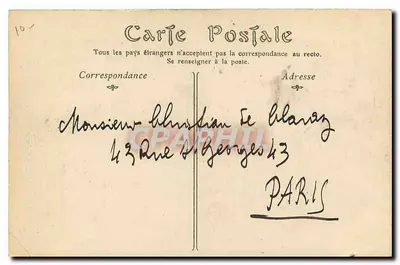 10-
Carte Postale
Tous les pays étrangers n'acceptent pas la correspondance au recto.
Se renseigner à la poste.
Correspondance
Adresse
Monsieur Christian de
43 Rue St Georges 43
PARIS